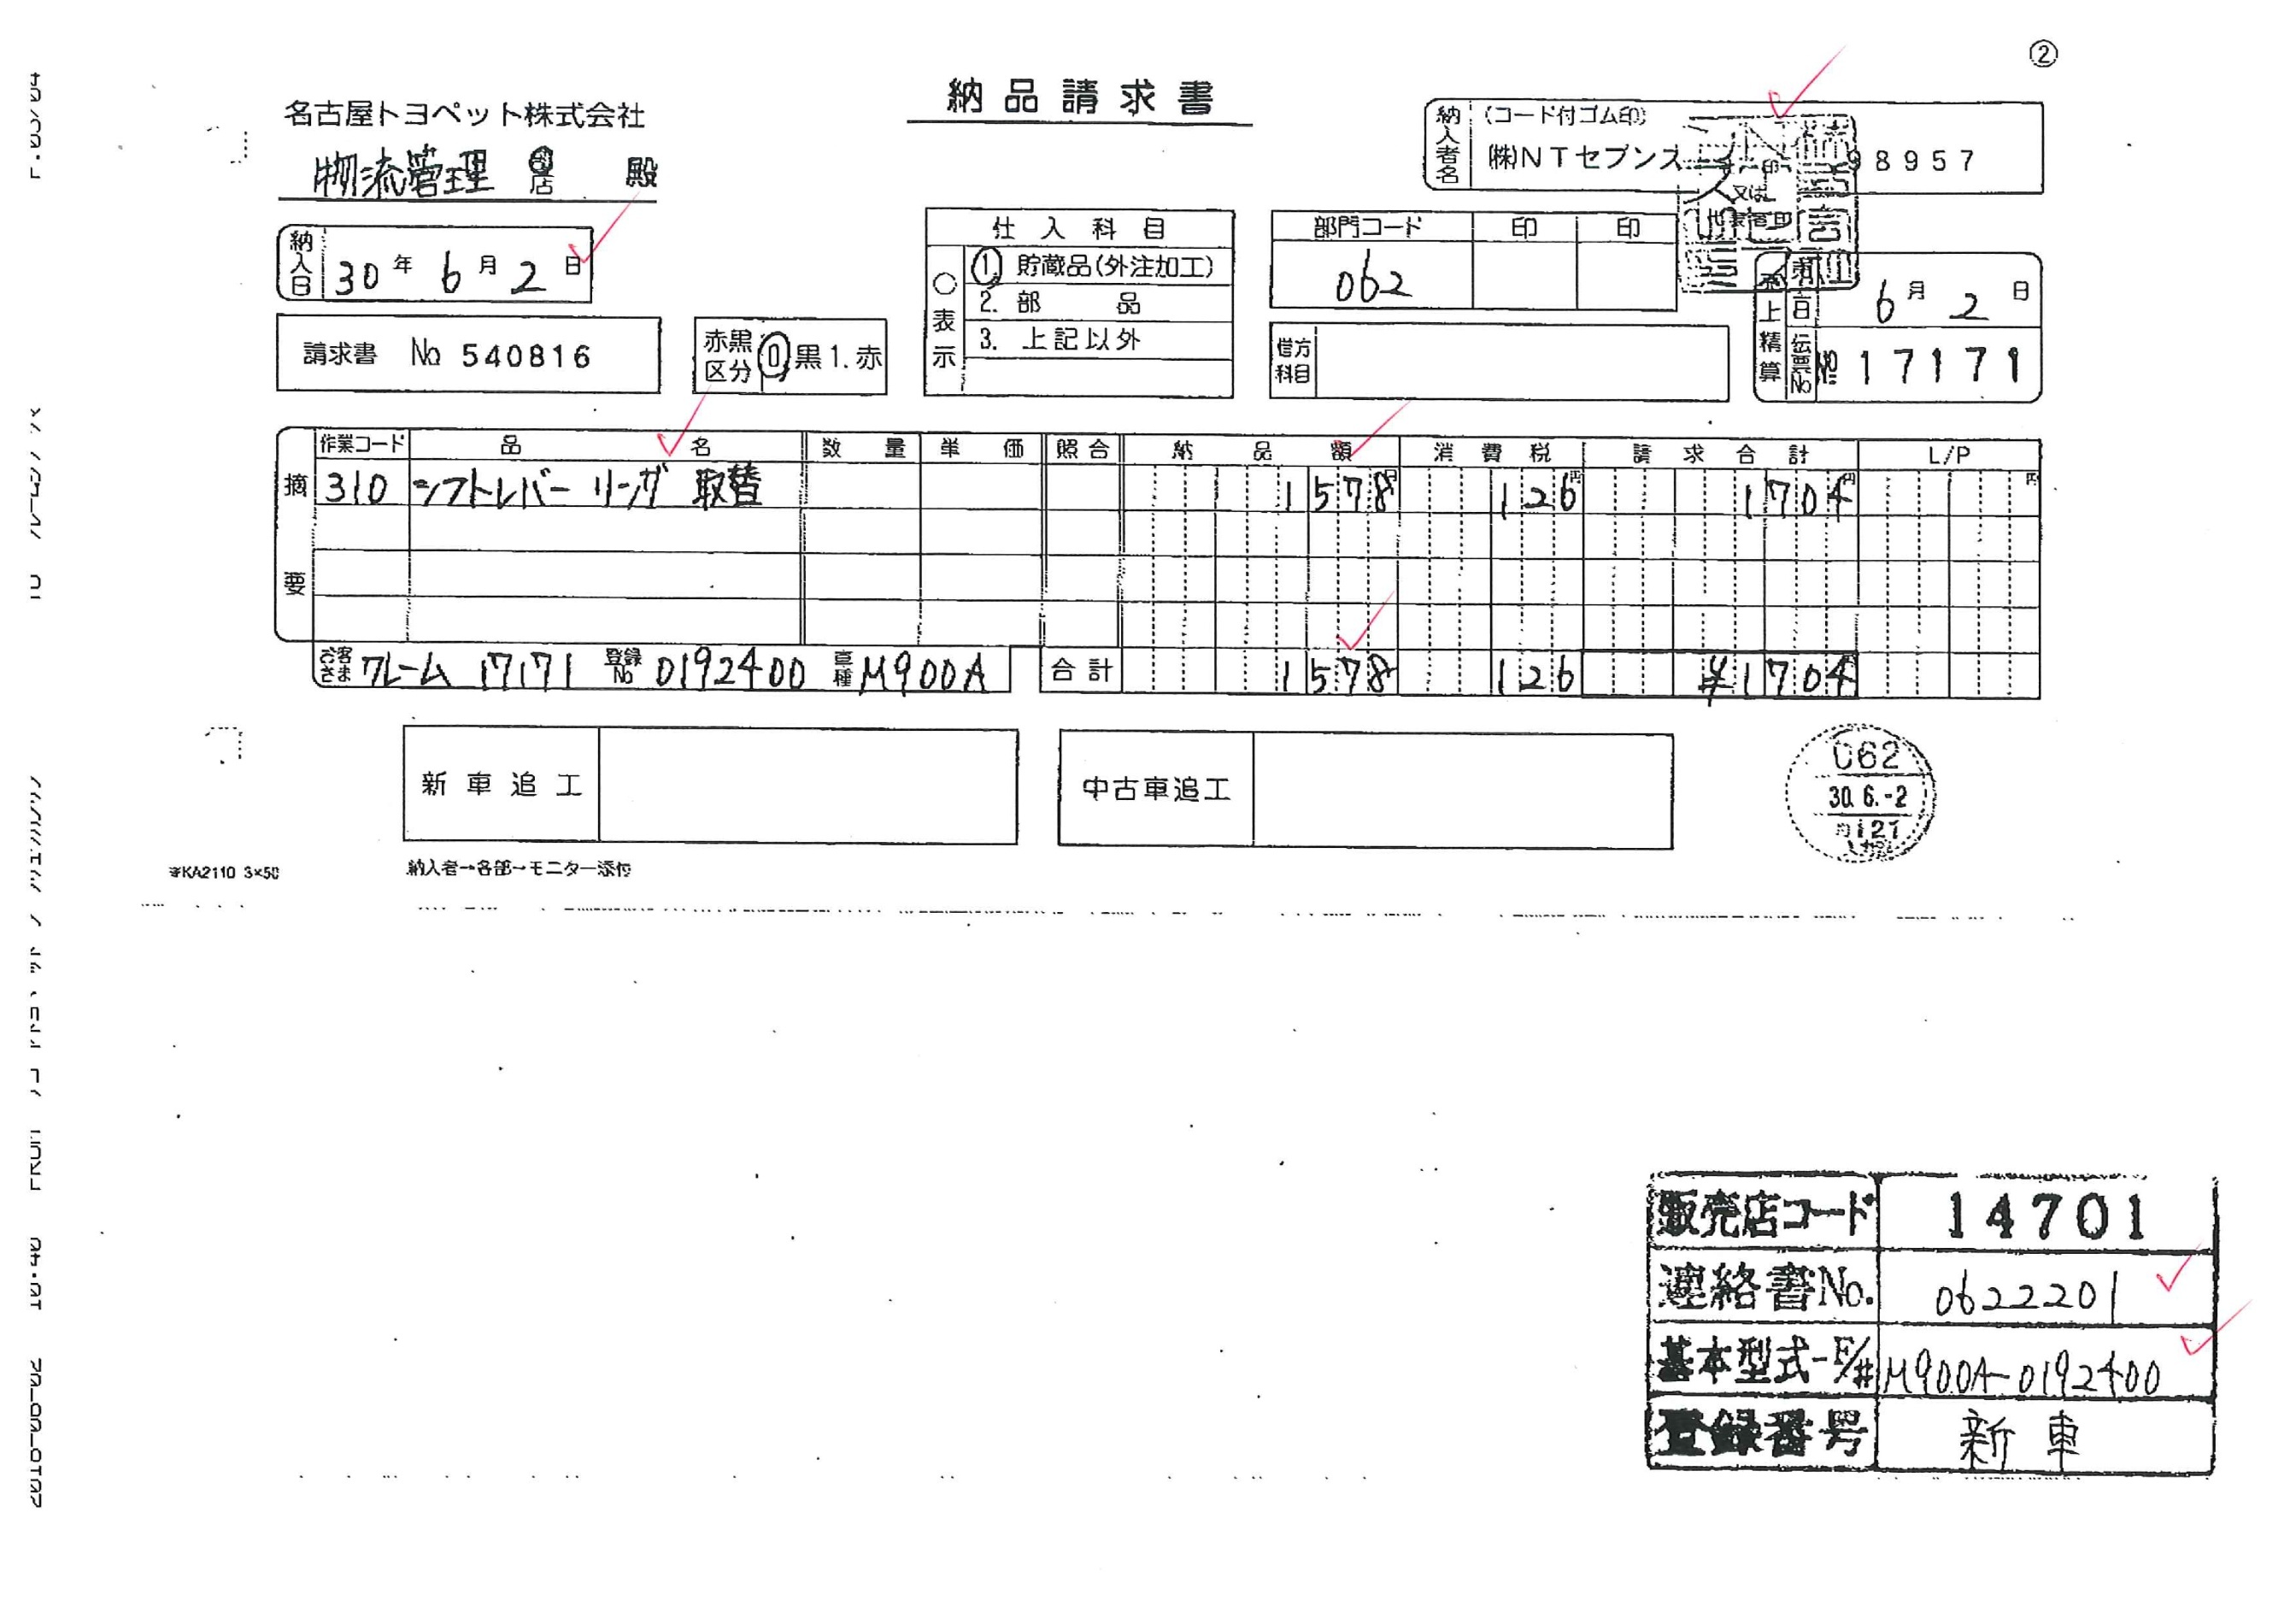 ②
納品請求書
名古屋トヨペット株式会社
物流管理 部 店 殿
納入者名 (コード付ゴム印)
㈱NTセブンス 98957
又は
代表者印
納入日 30年 6月 2日
請求書 No 540816
赤黒区分 0黒 1.赤
仕入科目
○表示
1. 貯蔵品(外注加工)
2. 部品
3. 上記以外
部門コード 印 印
062
借方科目
売上精算 6月 2日
伝票No № 17171
摘要
作業コード 品名 数量 単価 照合 納品額 消費税 請求合計 L/P
310 シフトレバーリング 取替 1578 126 1704
お客さま クレーム 17171 登録No 0192400 車種 M900A 合計 1578 126 ¥1704
新車追工
中古車追工
062
30. 6. -2
KA2110 3×50
納入者→各部→モニター添付
販売店コード 14701
連絡書No. 0622201
基本型式-F/# M900A-0192400
登録番号 新車